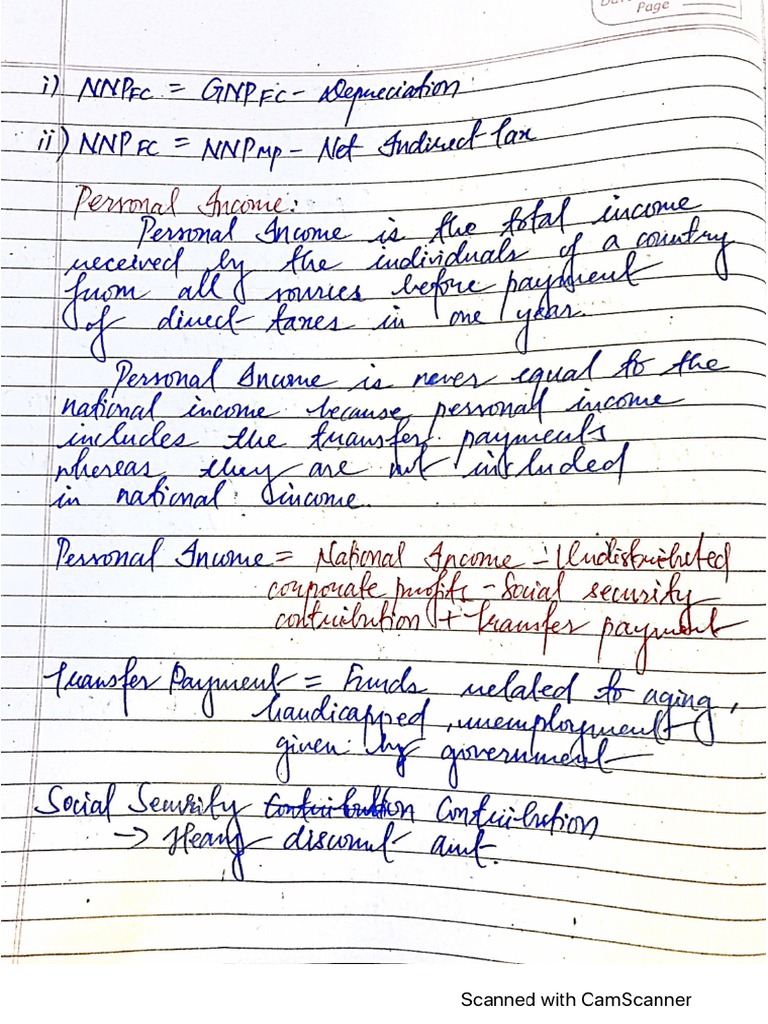 Page
i) NNPFC = GNPFC - Depreciation
ii) NNPFC = NNPMP - Net Indirect tax
Personal Income:
Personal Income is the total income
received by the individuals of a country
from all sources before payment
of direct taxes in one year.
Personal Income is never equal to the
national income because personal income
includes the transfer payments
whereas they are not included
in national income.
Personal Income = National Income - Undistributed
corporate profits - Social security
contribution + transfer payment
Transfer Payment = Funds related to aging,
handicapped, unemployment
given by government
Social Security Contribution Contribution
→ Heavy discount amt.
Scanned with CamScanner